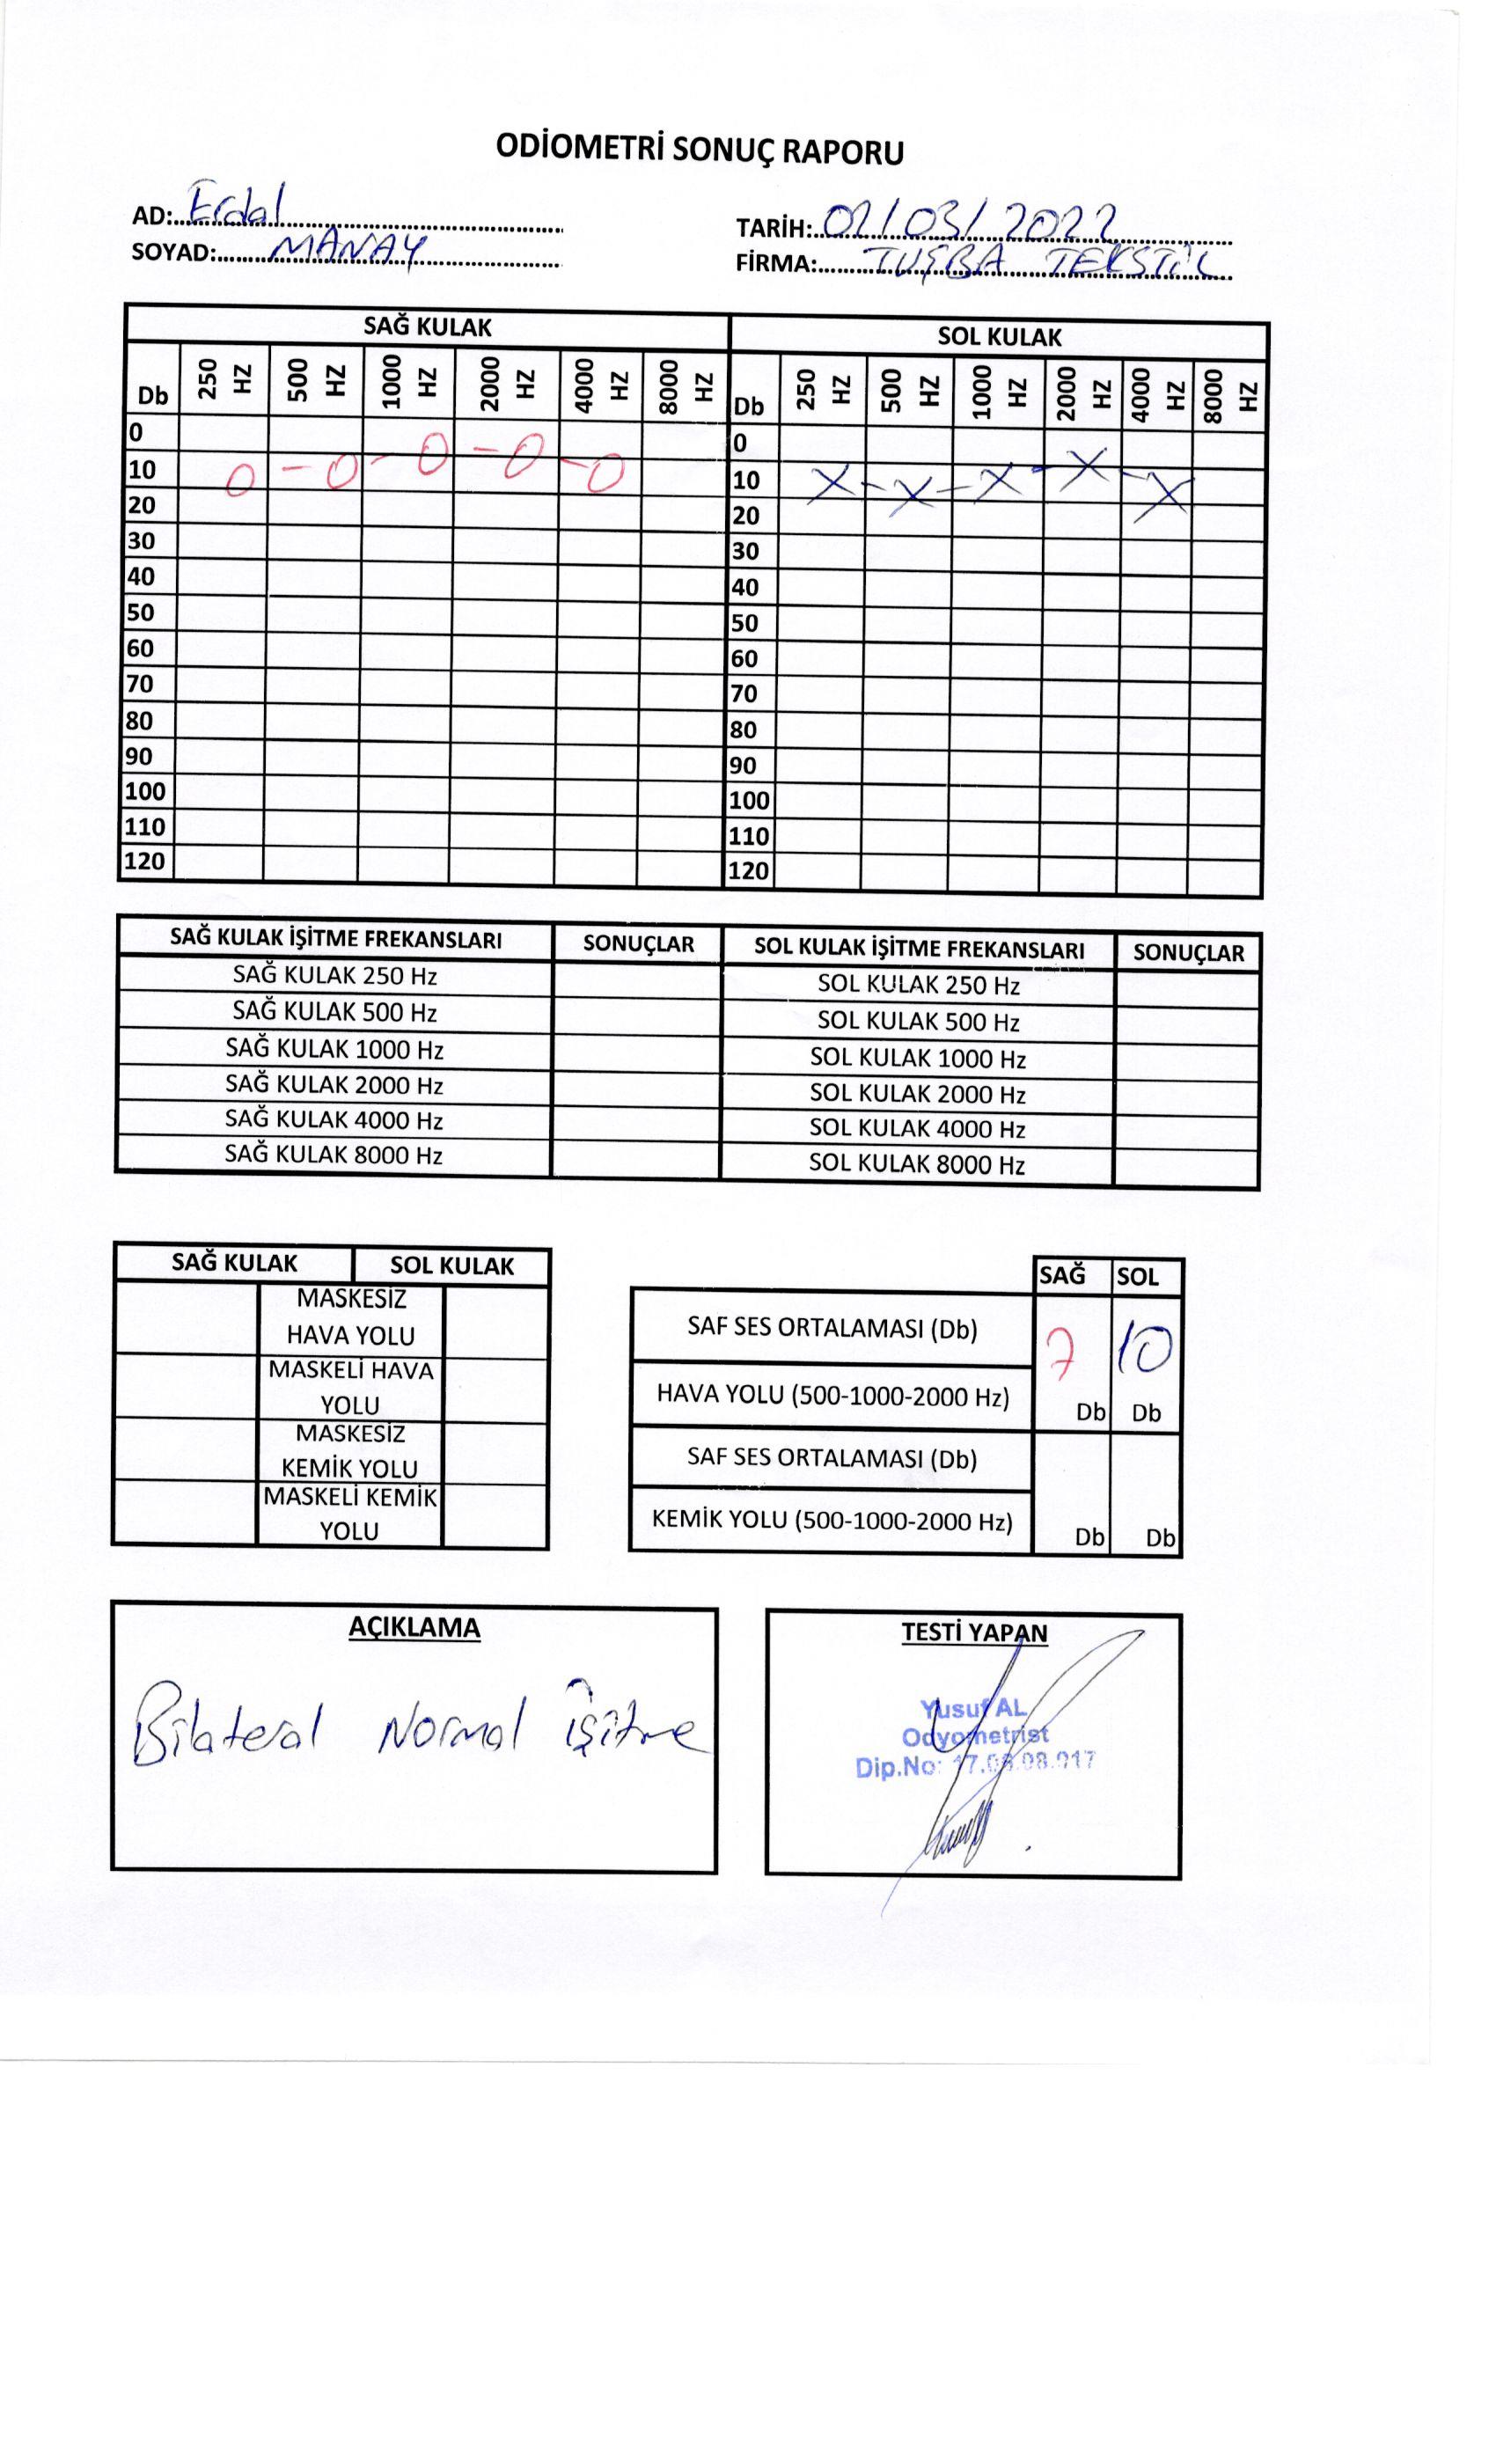 ODİOMETRİ SONUÇ RAPORU
AD: Erdal
SOYAD: MANAY
TARİH: 02/03/2022
FİRMA: TUĞBA TEKSTİL
SAĞ KULAK SOL KULAK
Db 250 HZ 500 HZ 1000 HZ 2000 HZ 4000 HZ 8000 HZ Db 250 HZ 500 HZ 1000 HZ 2000 HZ 4000 HZ 8000 HZ
0 0
10 10
20 20
30 30
40 40
50 50
60 60
70 70
80 80
90 90
100 100
110 110
120 120
SAĞ KULAK İŞİTME FREKANSLARI SONUÇLAR SOL KULAK İŞİTME FREKANSLARI SONUÇLAR
SAĞ KULAK 250 Hz SOL KULAK 250 Hz
SAĞ KULAK 500 Hz SOL KULAK 500 Hz
SAĞ KULAK 1000 Hz SOL KULAK 1000 Hz
SAĞ KULAK 2000 Hz SOL KULAK 2000 Hz
SAĞ KULAK 4000 Hz SOL KULAK 4000 Hz
SAĞ KULAK 8000 Hz SOL KULAK 8000 Hz
SAĞ KULAK SOL KULAK
MASKESİZ
HAVA YOLU
MASKELİ HAVA
YOLU
MASKESİZ
KEMİK YOLU
MASKELİ KEMİK
YOLU
SAĞ SOL
SAF SES ORTALAMASI (Db) 7 10
HAVA YOLU (500-1000-2000 Hz) Db Db
SAF SES ORTALAMASI (Db)
KEMİK YOLU (500-1000-2000 Hz) Db Db
AÇIKLAMA
Bilateral Normal İşitme
TESTİ YAPAN
Yusuf AL
Odyometrist
Dip.No: 17.08.08.017